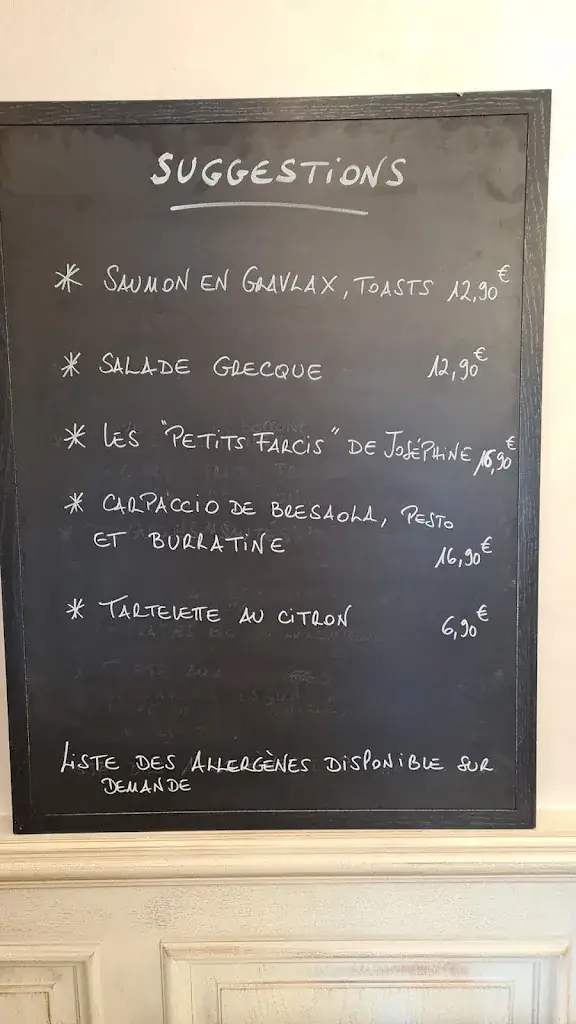 SUGGESTIONS
* SAUMON EN GRAVLAX, TOASTS 12,90€
* SALADE GRECQUE 12,90€
* LES "PETITS FARCIS" DE JOSÉPHINE 16,90€
* CARPACCIO DE BRESAOLA, PESTO
ET BURRATINE 16,90€
* TARTELETTE AU CITRON 6,90€
LISTE DES ALLERGÈNES DISPONIBLE SUR
DEMANDE